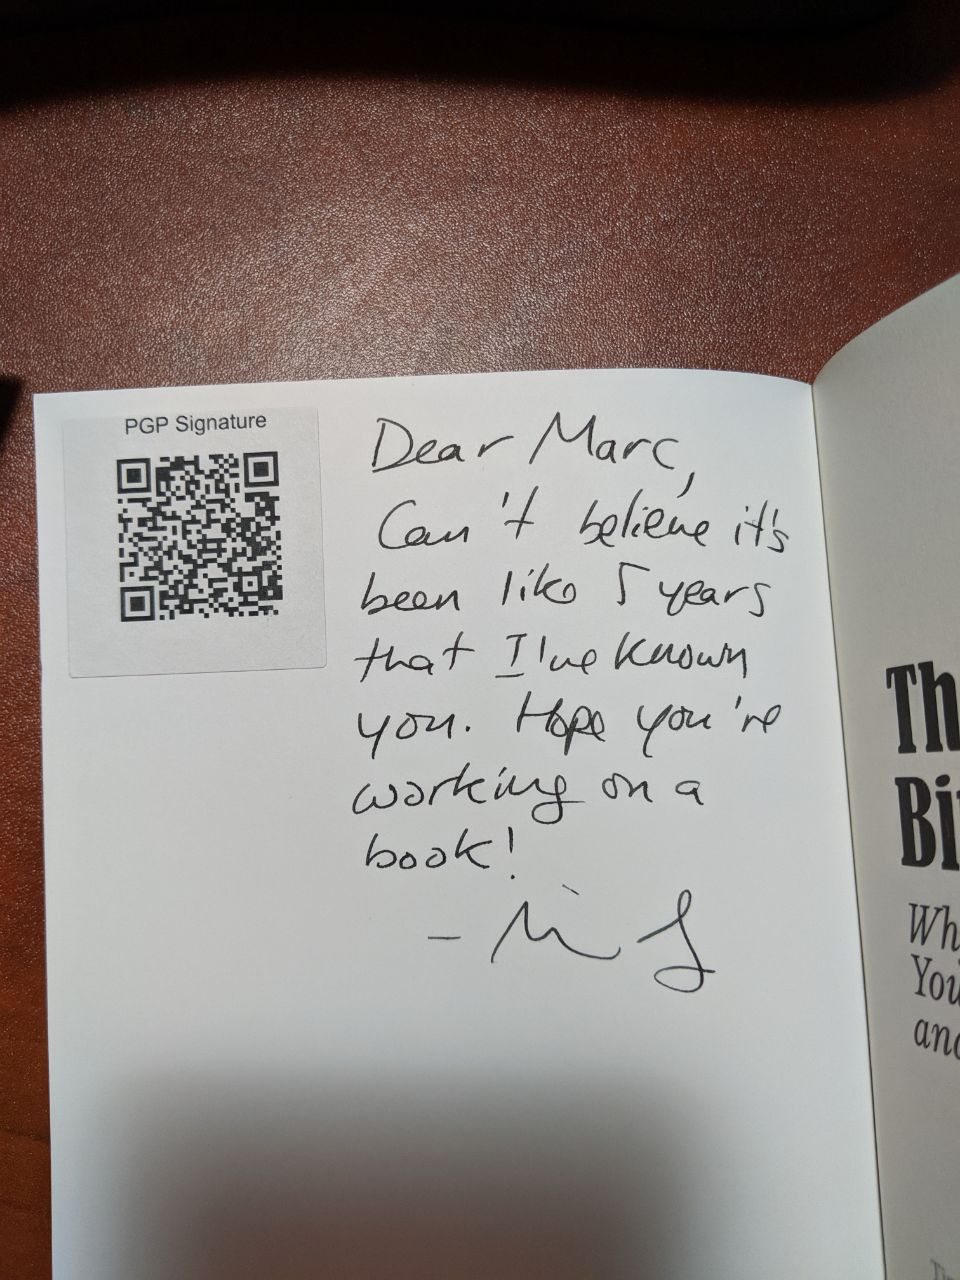 PGP Signature
Dear Marc,
Can't believe it's
been like 5 years
that I've known
you. Hope you're
working on a
book!
Th
Bi
Wh
You
and